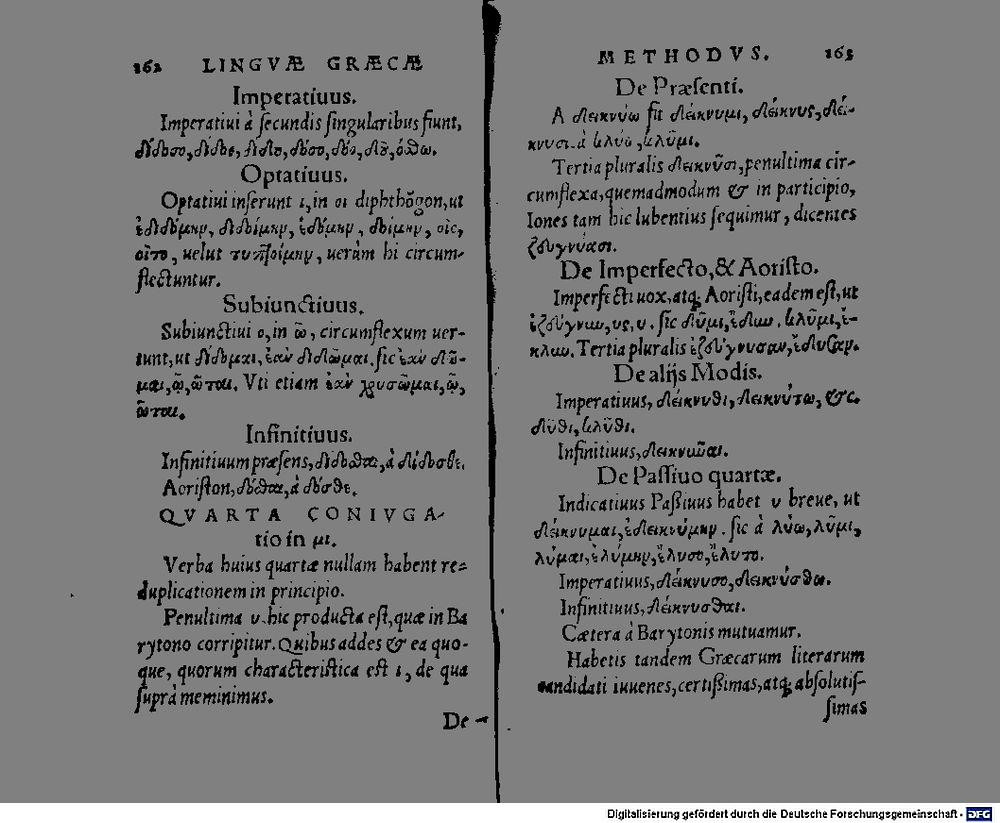 162 LINGVÆ GRÆCÆ
Imperatiuus.
Imperatiui à ſecundis ſingularibus fiunt,
δίδοσο, δίδοε, διδο, δόσο, δόο, δοῦ, όθω.
Optatiuus.
Optatiui inſerunt ι, in οι diphthõgon, ut
ἐδιδόμην, διδοίμην, ἐδόμην, δοίμην, οῖο,
οῖτο, uelut τυπτοίμην, uerùm hi circum-
flectuntur.
Subiunctiuus.
Subiunctiui ο, in ῶ, circumflexum uer-
tunt, ut δίδομαι, ἐὰν διδῶμαι. ſic ἐὰν δῶ-
μαι, ῷ, ῶται. Vti etiam ἐὰν χρυσῶμαι, ῷ,
ῶται.
Infinitiuus.
Infinitiuum præſens, δίδοσθαι, à δίδοσθε.
Aoriſton, δόσθαι, à δόσθε.
QVARTA CONIVGA-
tio in μι.
Verba huius quartæ nullam habent re=
duplicationem in principio.
Penultima υ. hic producta eſt, quæ in Ba
rytono corripitur. Quibus addes & ea quo-
que, quorum characteriſtica eſt ι, de qua
ſuprà meminimus.
De
METHODVS. 163
De Præſenti.
A δεικνύω fit δείκνυμι, δείκνυς, δεί-
κνυσι. à κλύω, κλῦμι.
Tertia pluralis δεικνῦσι, penultima cir-
cumflexa, quemadmodum & in participio,
Iones tam hic lubentius ſequimur, dicentes
ζευγνύασι.
De Imperfecto, & Aoriſto.
Imperfecti uox, atq; Aoriſti, eadem eſt, ut
ἐζεύγνυν, υς, υ. ſic δῦμι, ἔδυν. κλῦμι, ἔ-
κλυν. Tertia pluralis ἐζεύγνυσαν, ἔδυσαν.
De alijs Modis.
Imperatiuus, δείκνυθι, δεικνύτω, &c.
δῦθι, κλῦθι.
Infinitiuus, δεικνύναι.
De Paſſiuo quartæ.
Indicatiuus Paſſiuus habet υ breue, ut
δείκνυμαι, ἐδεικνύμην. ſic à λύω, λῦμι,
λύμαι, ἐλύμην, ἔλυσο, ἔλυτο.
Imperatiuus, δείκνυσο, δεικνύσθω.
Infinitiuus, δείκνυσθαι.
Cætera à Barytonis mutuamur.
Habetis tandem Græcarum literarum
candidati iuuenes, certiſſimas, atq; abſolutiſ-
ſimas
Digitalisierung gefördert durch die Deutsche Forschungsgemeinschaft - DFG